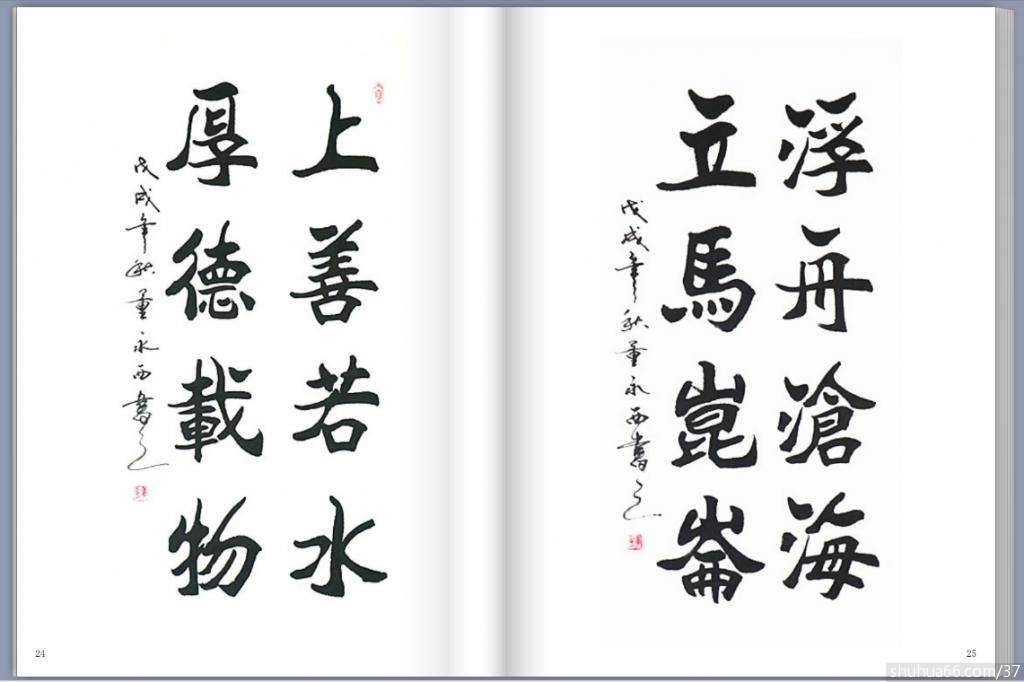 上善若水
厚德載物
戊戌年秋董永西書之
浮舟滄海
立馬崑崙
戊戌年秋董永西書之
24
25
shuhua66.com/37